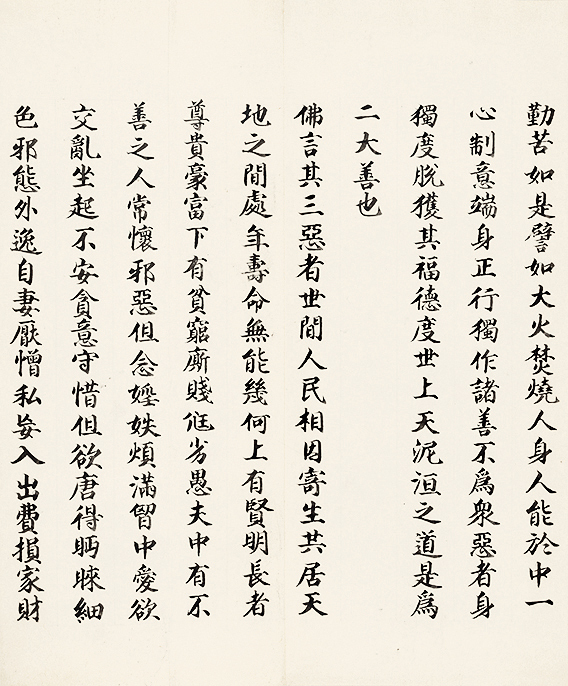 勤苦如是譬如大火焚燒人身人能於中一
心制意端身正行獨作諸善不為衆惡者身
獨度脫獲其福德度世上天泥洹之道是為
二大善也
佛言其三惡者世間人民相因寄生共居天
地之間處年壽命無能幾何上有賢明長者
尊貴豪富下有貧窮廝賤尫劣愚夫中有不
善之人常懷邪惡但念婬妷煩滿匈中愛欲
交亂坐起不安貪意守惜但欲唐得眄睞細
色邪態外逸自妻厭憎私妄入出費損家財